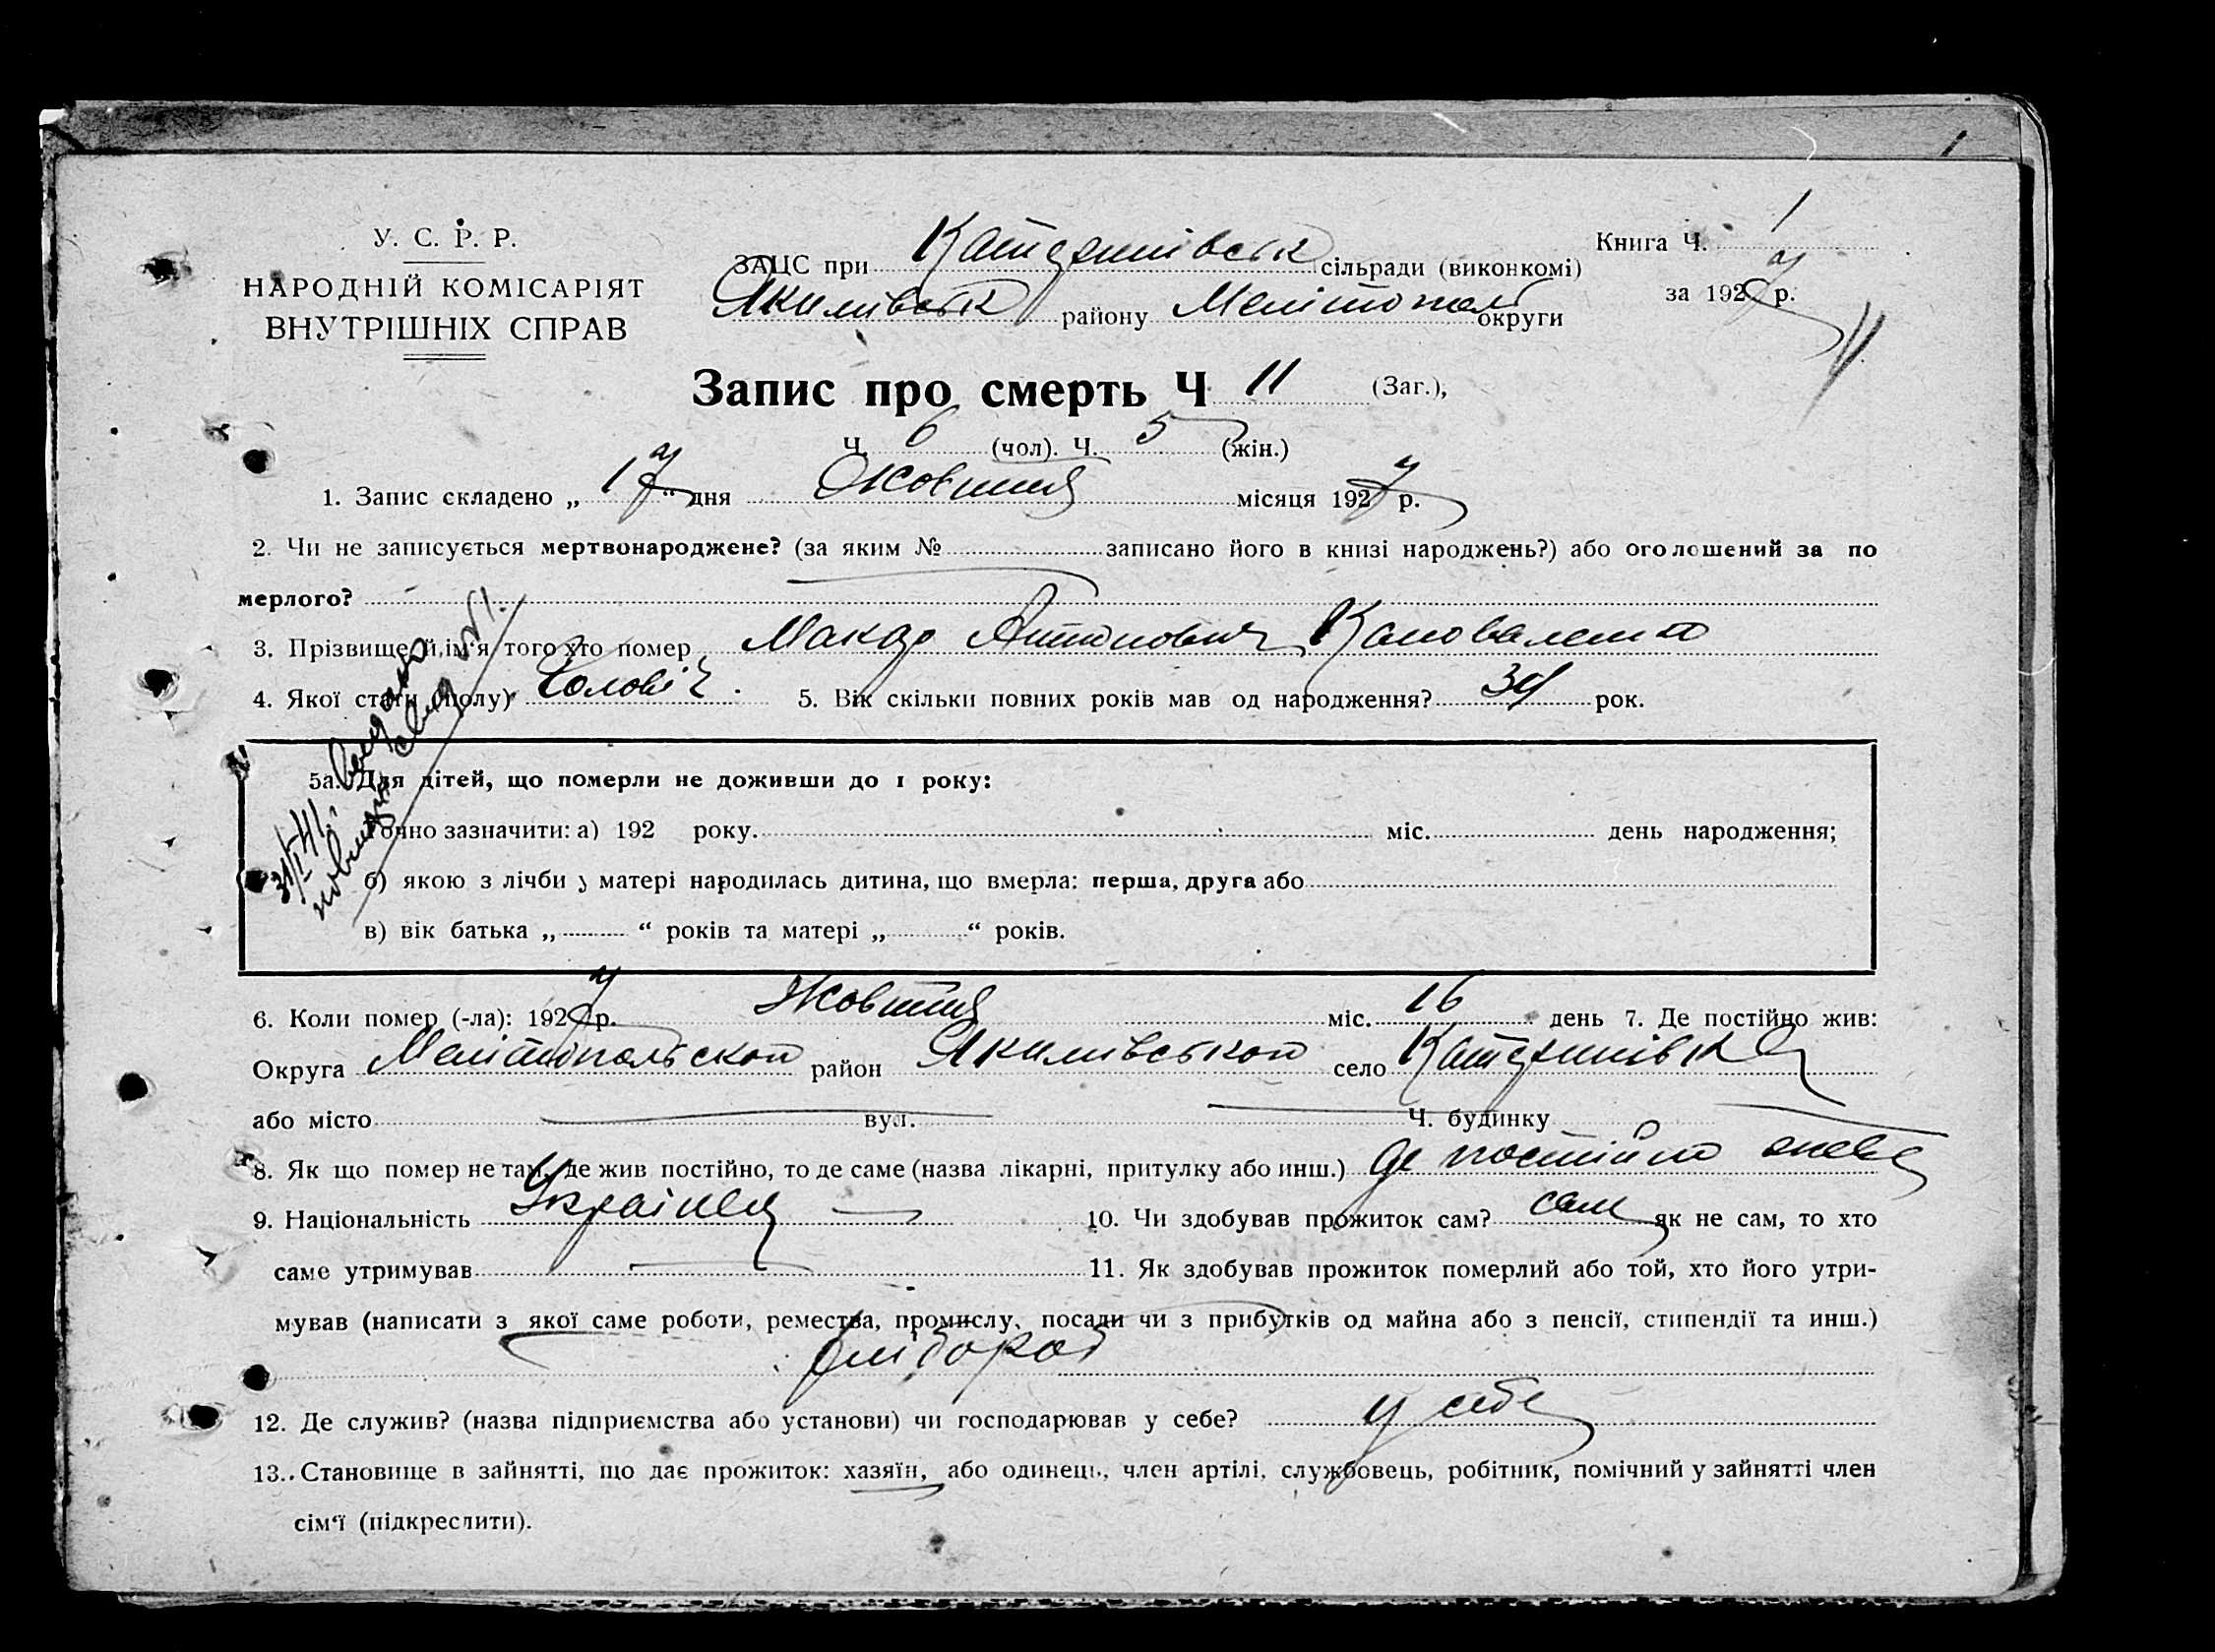 1
У. С. Р. Р.
НАРОДНІЙ КОМІСАРІЯТ
ВНУТРІШНІХ СПРАВ
ЗАЦС при Катеринівськ сільради (виконкомі)
Якимівськ району Мелітопол округи
Книга Ч. 1
за 1927 р.
Запис про смерть Ч 11 (Заг.),
Ч. 6 (чол). Ч. 5 (жін.)
1. Запис складено „ 17 “ дня Жовтня місяця 1927 р.
2. Чи не записується мертвонароджене? (за яким № записано його в книзі народжень?) або оголошений за по
мерлого?
3. Прізвище й ім'я того хто помер Макар Антонович Коноваленко
4. Якої стати (полу) Чоловіч. 5. Вік скільки повних років мав од народження? 34 рок.
5а. Для дітей, що померли не доживши до 1 року:
Точно зазначити: а) 192 року. міс. день народження;
б) якою з лічби у матері народилась дитина, що вмерла: перша, друга або
в) вік батька „ “ років та матері „ “ років.
6. Коли помер (-ла): 1927 р. Жовтня міс. 16 день 7. Де постійно жив:
Округа Мелітопольскої район Якимівської село Катеринівка
або місто вул. Ч. будинку
8. Як що помер не там, де жив постійно, то де саме (назва лікарні, притулку або инш.) де постійно
9. Національність Українец 10. Чи здобував прожиток сам? сам як не сам, то хто
саме утримував 11. Як здобував прожиток померлий або той, хто його утри-
мував (написати з якої саме роботи, ремества, промислу, посади чи з прибутків од майна або з пенсії, стипендії та инш.)
хлібороб
12. Де служив? (назва підприємства або установи) чи господарював у себе? у себе
13. Становище в зайнятті, що дає прожиток: хазяїн, або одинець, член артілі, службовець, робітник, помічний у зайнятті член
сім'ї (підкреслити).